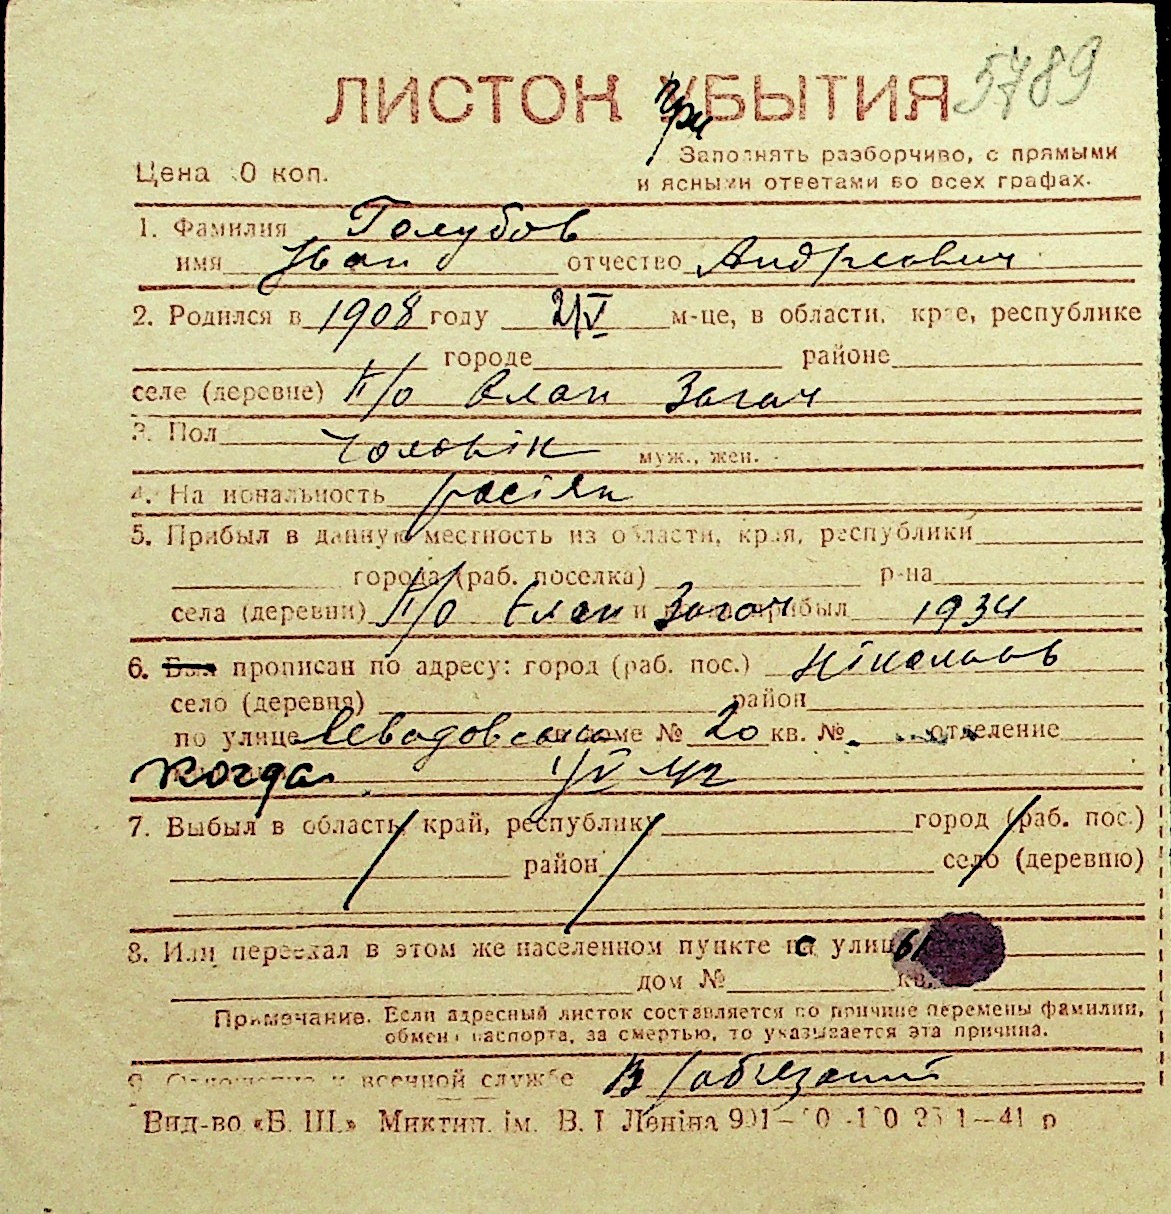 ЛИСТОН УБЫТИЯ 5789
при
Заполнять разборчиво, с прямыми
Цена 0 коп.
и ясными ответами во всех графах.
1. Фамилия Голубов
имя Иван отчество Андреевич
2. Родился в 1908 году 2/V м-це, в области, крае, республике
городе районе
селе (деревне) Елан
3. Пол чоловік муж., жен.
4. Национальность росіян
5. Прибыл в данную местность из области, края, республики
города (раб. поселка) р-на
села (деревни) Елан и прибыл 1934
6. Был прописан по адресу: город (раб. пос.) Ніколаїв
село (деревня) район
по улице доме № 20 кв. № отделение
когда
7. Выбыл в область, край, республику город (раб. пос.)
район село (деревню)
8. Или переехал в этом же населенном пункте с улицы
дом № кв.
Примечание. Если адресный листок составляется по причине перемены фамилии,
обмена паспорта, за смертью, то указывается эта причина.
9. Отношение к военной службе В/обязаний
Вид-во «Б. Ш.» Миктип. ім. В. І Леніна 1—41 р